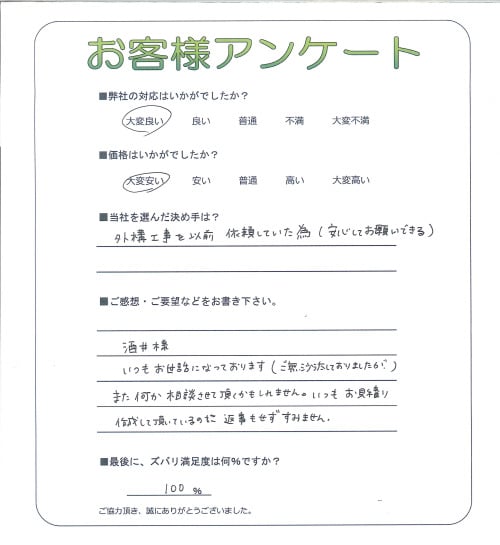 お客様アンケート
■弊社の対応はいかがでしたか？
大変良い 良い 普通 不満 大変不満
■価格はいかがでしたか？
大変安い 安い 普通 高い 大変高い
■当社を選んだ決め手は？
外構工事を以前 依頼していた為(安心してお願いできる)
■ご感想・ご要望などをお書き下さい。
酒井様
いつもお世話になっております(ご無沙汰しておりましたが)
また何か相談させて頂くかもしれません。いつもお見積り
作成して頂いているのに 返事もせずすみません.
■最後に、ズバリ満足度は何%ですか？
100 %
ご協力頂き、誠にありがとうございました。